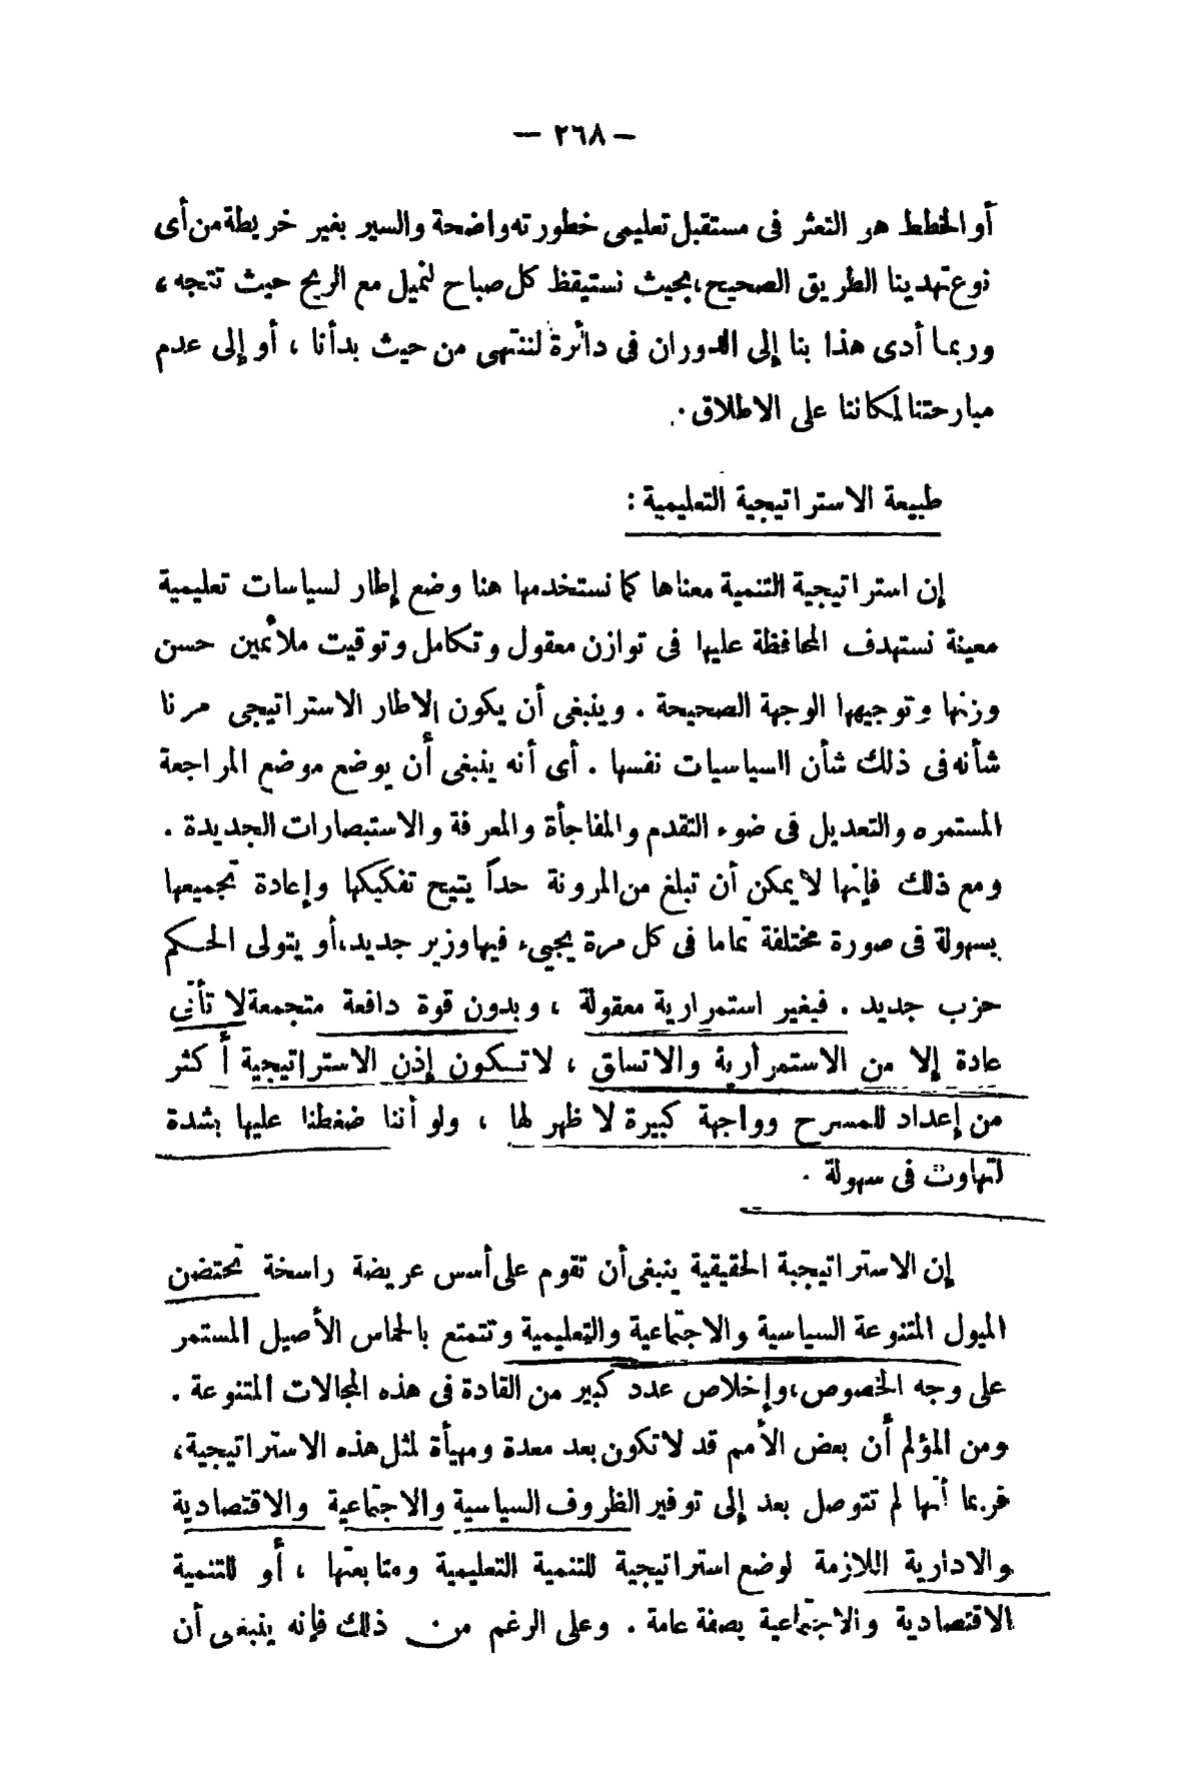 — ٢٦٨ —
أو الخطط هو التعثر فى مستقبل تعليمى خطورته واضحة والسير بغير خريطة من أى
نوع تهدينا الطريق الصحيح ، بحيث نستيقظ كل صباح لنميل مع الريح حيث تتجه ،
وربما أدى هذا بنا إلى الدوران فى دائرة لننتهى من حيث بدأنا ، أو إلى عدم
مبارحتنا لمكاننا على الاطلاق .
طبيعة الاستراتيجية التعليمية :
إن استراتيجية التنمية معناها كما نستخدمها هنا وضع إطار لسياسات تعليمية
معينة نستهدف المحافظة عليها فى توازن معقول وتكامل وتوقيت ملائمين حسن
وزنها وتوجيهها الوجهة الصحيحة . وينبغى أن يكون الاطار الاستراتيجى مرنا
شأنه فى ذلك شأن السياسيات نفسها . أى أنه ينبغى أن يوضع موضع المراجعة
المستمره والتعديل فى ضوء التقدم والمفاجأة والمعرفة والاستبصارات الجديدة .
ومع ذلك فإنها لا يمكن أن تبلغ من المرونة حداً يتيح تفكيكها وإعادة تجميعها
بسهولة فى صورة مختلفة تماما فى كل مرة يجيىء فيها وزير جديد، أو يتولى الحكم
حزب جديد . فبغير استمرارية معقولة ، وبدون قوة دافعة متجمعة لا تأتى
عادة إلا من الاستمرارية والاتساق ، لا تكون إذن الاستراتيجية أكثر
من إعداد للمسرح وواجهة كبيرة لا ظهر لها ، ولو أننا ضغطنا عليها بشدة
لتهاوت فى سهولة .
إن الاستراتيجية الحقيقية ينبغى أن تقوم على أسس عريضة راسخة تحتضن
الميول المتنوعة السياسية والاجتماعية والتعليمية وتتمتع بالحماس الأصيل المستمر
على وجه الخصوص، وإخلاص عدد كبير من القادة فى هذه المجالات المتنوعة .
ومن المؤلم أن بعض الأمم قد لا تكون بعد معدة ومهيأة لمثل هذه الاستراتيجية ،
فربما أنها لم تتوصل بعد إلى توفير الظروف السياسية والاجتماعية والاقتصادية
والادارية اللازمة لوضع استراتيجية للتنمية التعليمية ومتابعتها ، أو للتنمية
الاقتصادية والاجتماعية بصفة عامة . وعلى الرغم من ذلك فإنه ينبغى أن